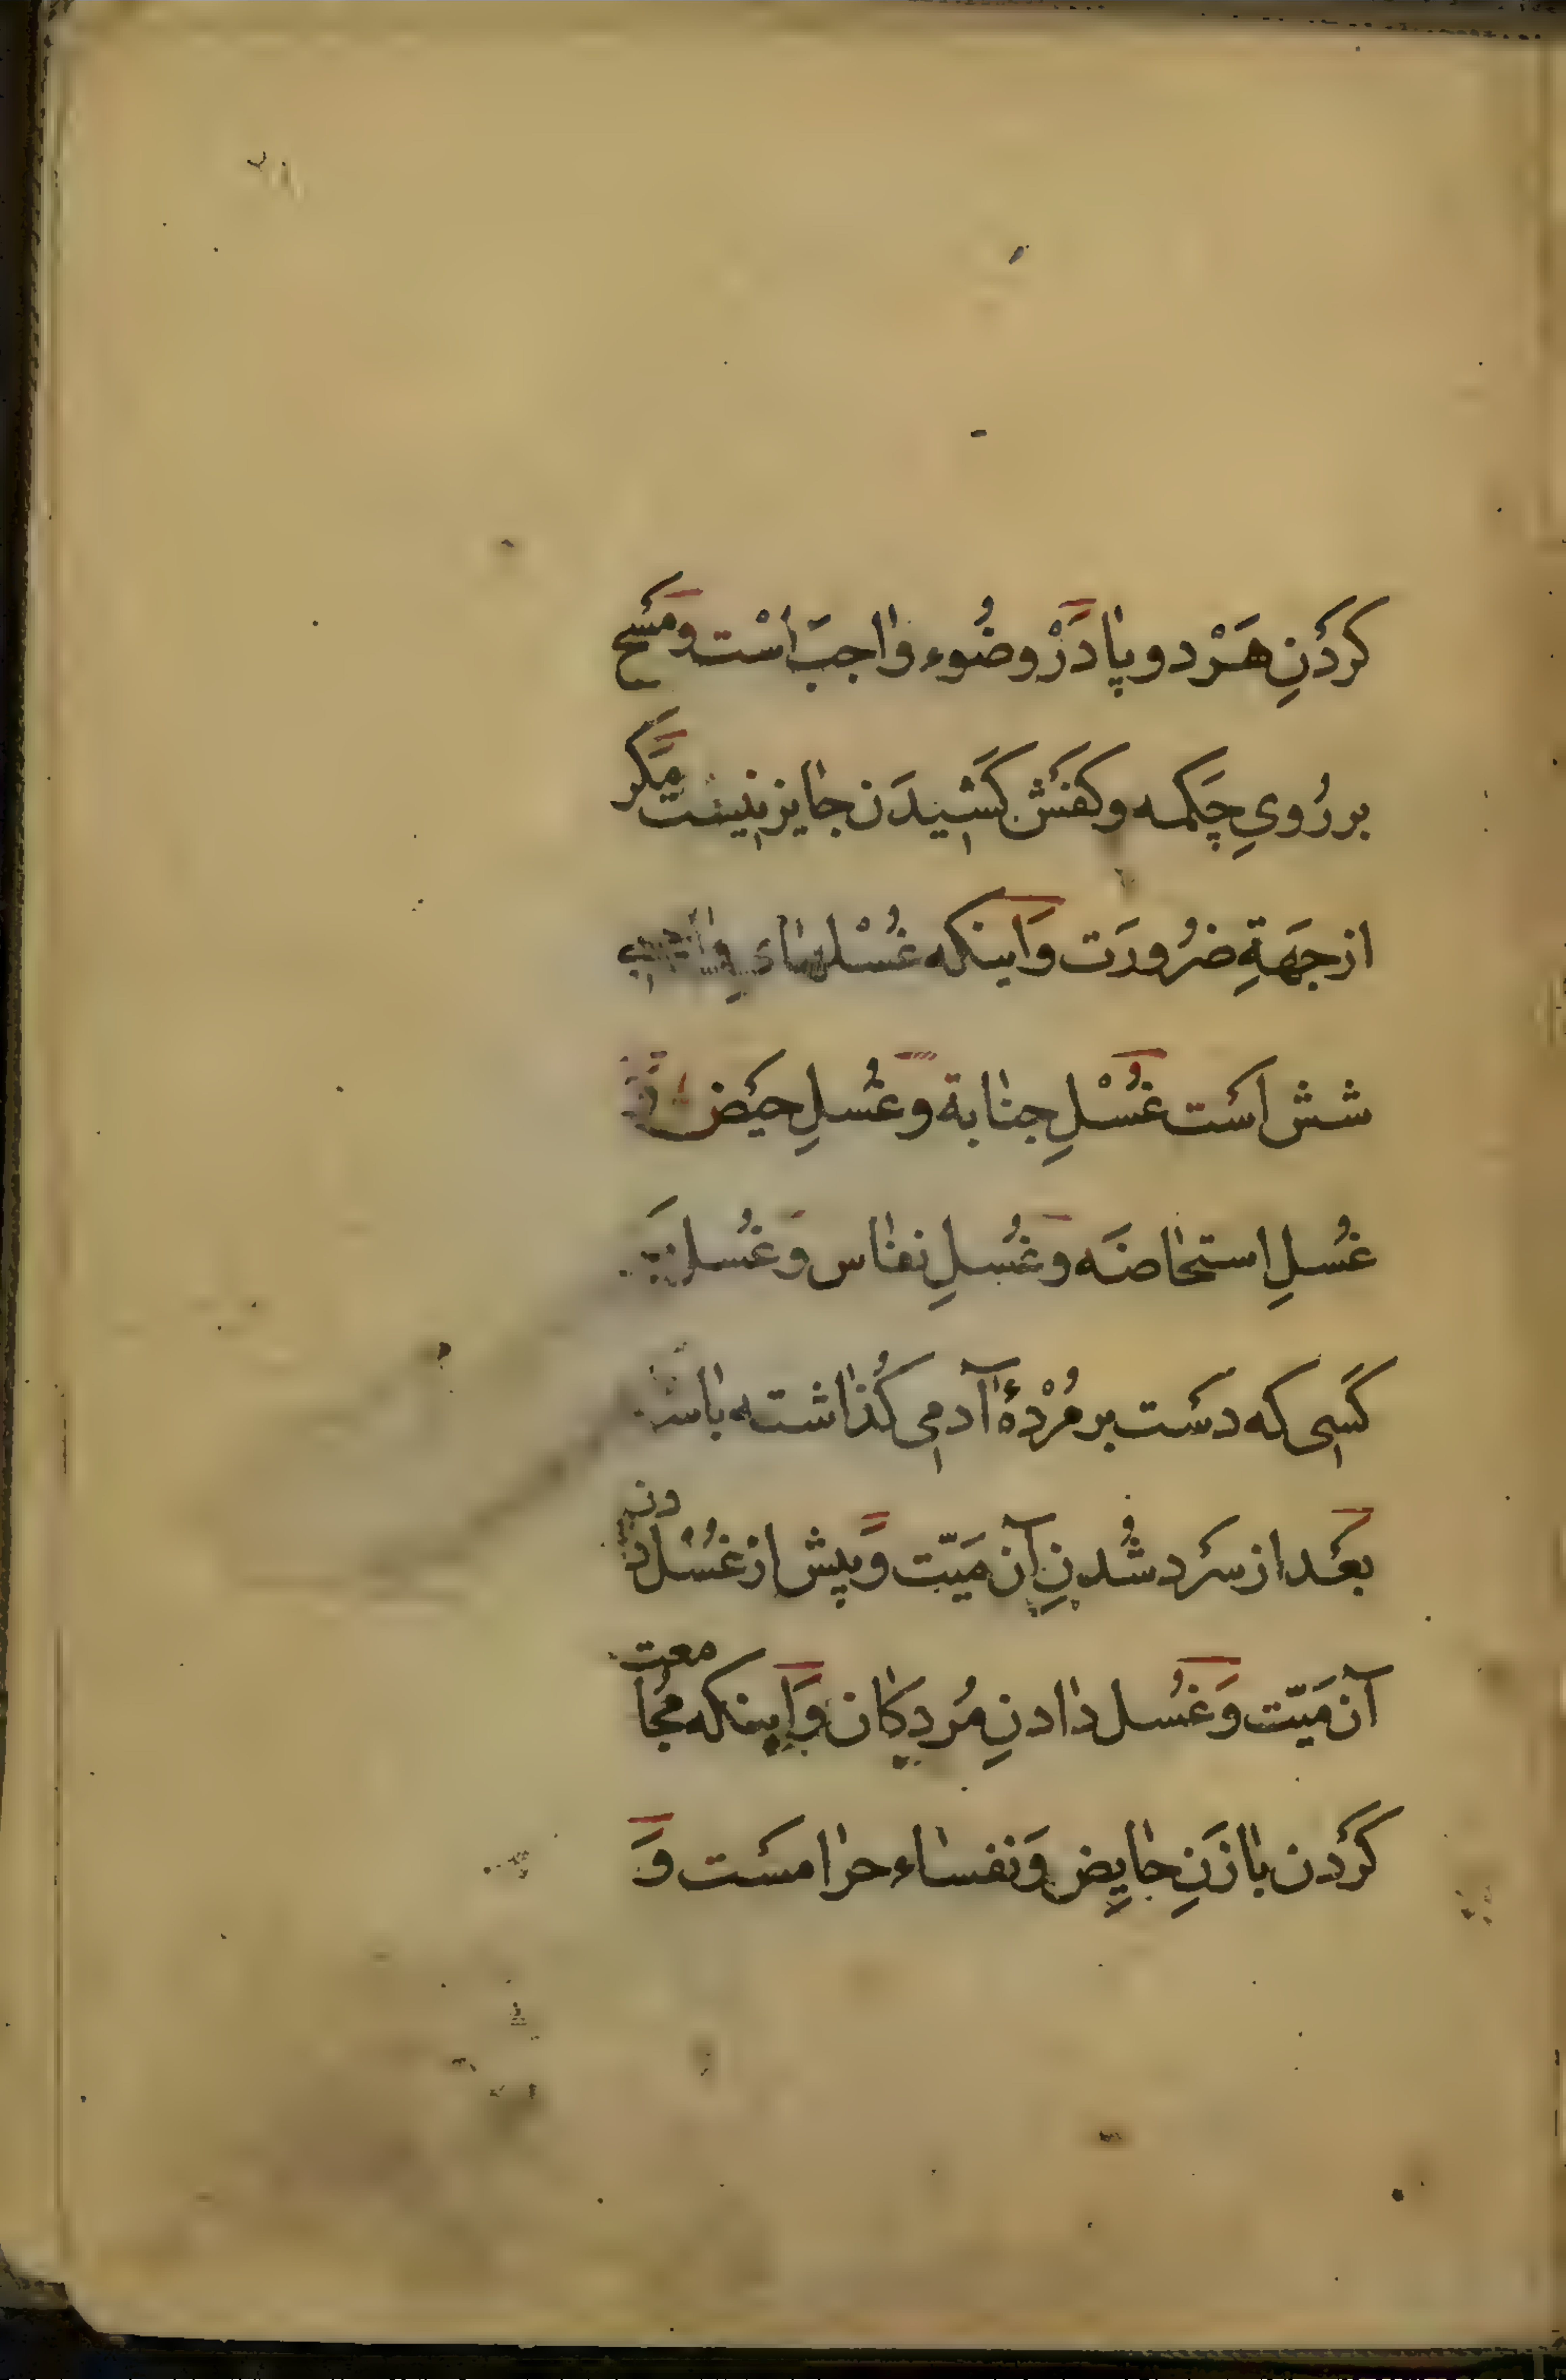 کَرْدَنِ هَرْ دو پا دَرْ وضُوء واجبَ اسْت و مَسْح
بر رُویِ چَکمه و کفَش کَشیدَن جایز نیسْت مَکَر
از جَهَةِ ضرُورَت وَ اینکه غُسْلهاءِ واجبی
شش اسَت غُسْلِ جنابة و غُسلِ حَیض و
غُسلِ استحاضَه و غُسلِ نفاس وَ غُسلِ
کَسی که دسَت بر مُرْدۀ آدمی کُذاشته باشد
بعَد از سَرد شُدنِ آن مَیّت وَ پیش از غُسْل دادن
آن مَیّت وَ غُسل دادنِ مُردِکان وَ اینکه مجُامعت
کَرْدن با زَنِ حایِض وَ نفساء حرامسَت وَ